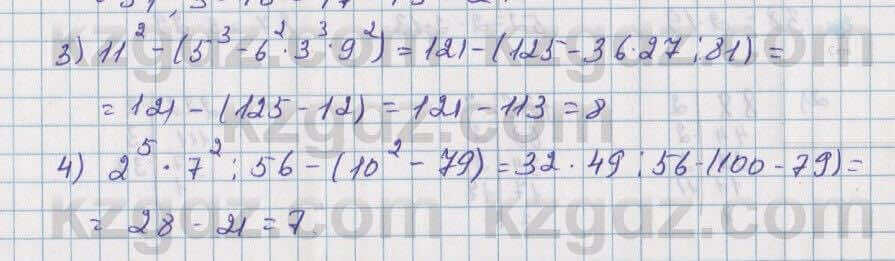 3) 11² - (5³ - 6² · 3³ · 9²) = 121 - (125 - 36 · 27 : 81) =
= 121 - (125 - 12) = 121 - 113 = 8
4) 2⁵ · 7² : 56 - (10² - 79) = 32 · 49 : 56 - (100 - 79) =
= 28 - 21 = 7.
kzgdz.com